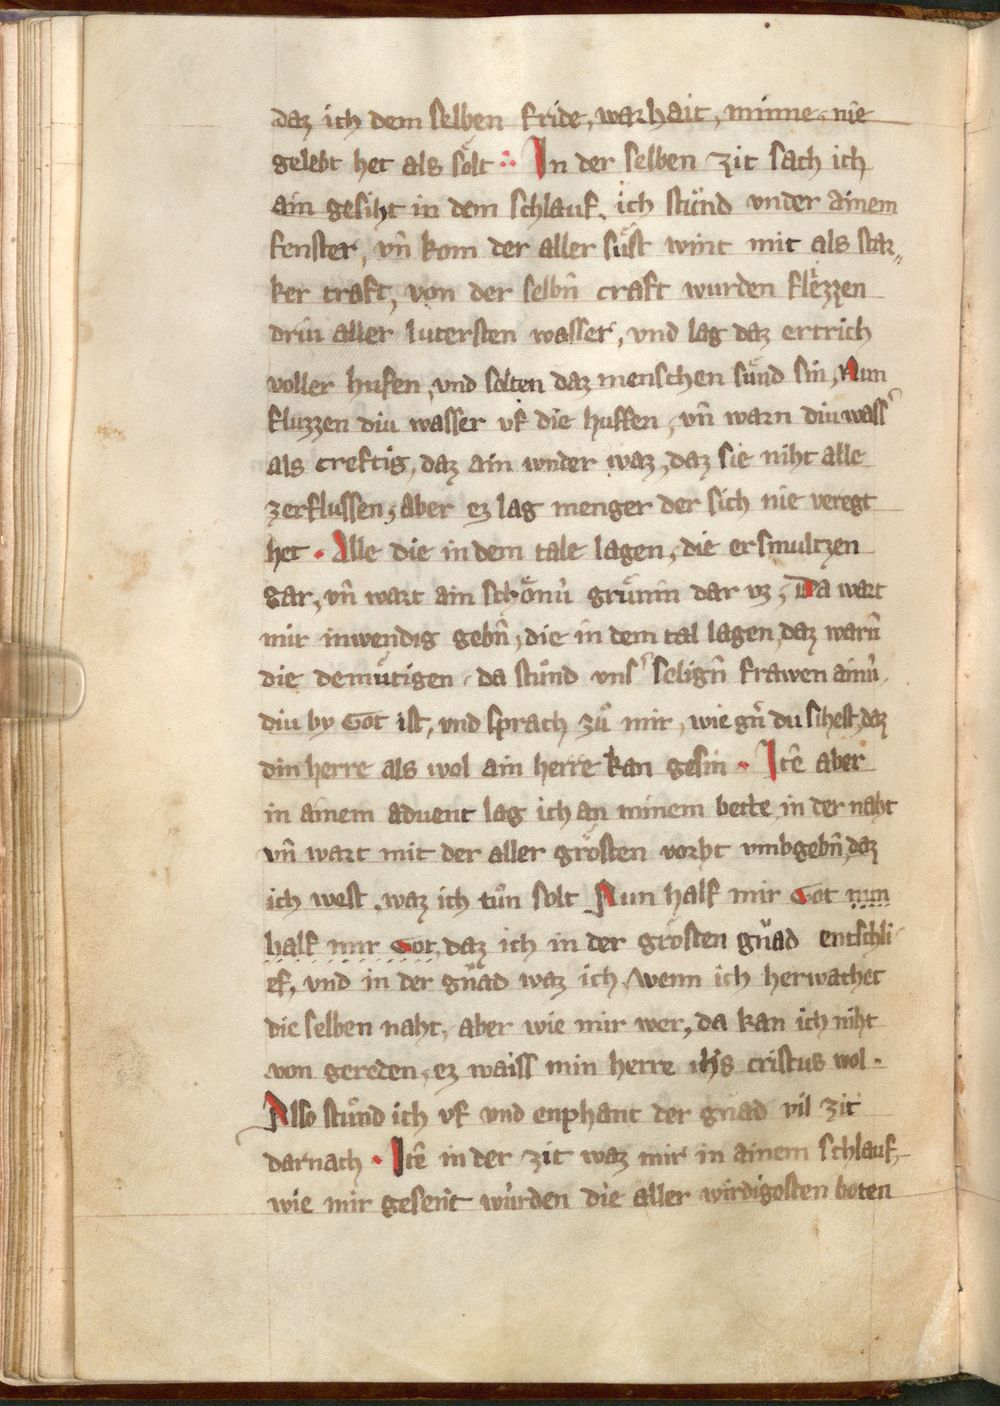 daz ich dem selben fride, warhait, minne nie
gelebt het als soͤlt ∴ In der selben zit sach ich
ain gesiht in dem schlauf, ich stuͤnd vnder ainem
fenster, vn̄ kom der aller suͤst wint mit als star„
ker craft, von der selbn̄ craft wurden flezzen
driu aller lutersten wasser, vnd lag daz ertrich
voller hufen, vnd solten daz menschen suͤnd sin, Nun
fluzzen diu wasser vf die huffen, vn̄ warn diu wass᾽
als creftig, daz ain wnder waz, daz sie niht alle
zerflussen, aber ez lag menger der sich nie veregt
het · Alle die in dem tale lagen, die ersmultzen
gar, vn̄ wart ain schoͤnuͥ gruͤnin dar vz, Da wart
mir inwendig gebn̄, die in dem tal lagen, daz warn̄
die demuͤtigen, da stuͦnd vns᾽ selign̄ frawen ainuͥ,
diu by Got ist, vnd sprach zuͦ mir, wie gn̄ du sihest, daz
din herre als wol ain herre kan gesin · Itē aber
in ainem aduent lag ich an minem bette in der naht
vn̄ wart mit der aller groͤsten vorht vmbgebn̄, daz
ich west, waz ich tuͦn solt Nun half mir Got nun
half mir Got, daz ich in der groͤsten gn̄ad entschli
ef, vnd in der gn̄ad waz ich, wenn ich herwachet
die selben naht, aber wie mir wer, da kan ich niht
von gereden, ez waiss min herre ih̄s cristus wol ·
Also stuͦnd ich vf vnd enphant der gnad vil zit
darnach · Itē in der zit waz mir in ainem schlauf,
wie mir gesent wuͥrden die aller wirdigosten boten